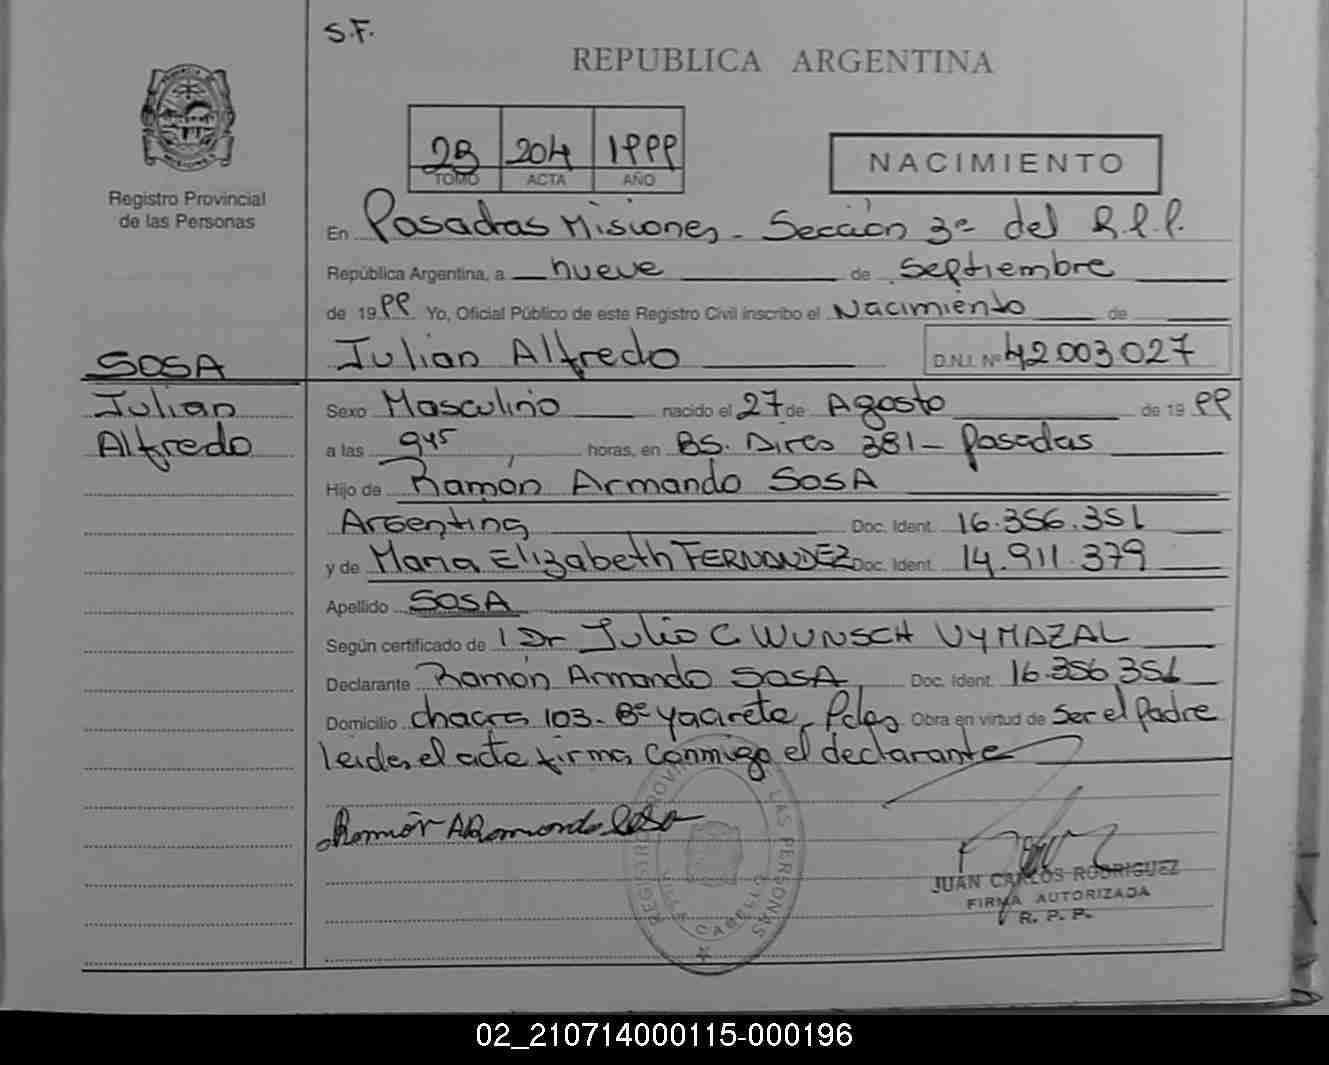 S.F.
REPUBLICA ARGENTINA
2B 204 1999
TOMO ACTA AÑO
NACIMIENTO
Registro Provincial
de las Personas
En Posadas Misiones - Sección 3ª del R.P.P.
República Argentina, a nueve de Septiembre
de 1999 Yo, Oficial Público de este Registro Civil inscribo el Nacimiento de
Julian Alfredo D.N.I. Nº 42003027
SOSA
Julian
Alfredo
Sexo Masculino nacido el 27 de Agosto de 1999
a las 9 45 horas, en BS. Aires 381 - Posadas
Hijo de Ramón Armando SOSA
Argentino Doc. Ident. 16.356.351
y de Maria Elizabeth FERNANDEZ Doc. Ident. 14.911.379
Apellido SOSA
Según certificado de Dr Julio C WUNSCH VYMAZAL
Declarante Ramón Armando SOSA Doc. Ident. 16.356 351
Domicilio chacra 103 - Bº Yacirete, Pdas Obra en virtud de Ser el Padre
leida el acta firma conmigo el declarante
Ramón Armando Sosa
REGISTRO PROVINCIAL DE LAS PERSONAS
JUAN CARLOS RODRIGUEZ
FIRMA AUTORIZADA
R. P. P.
02_210714000115-000196